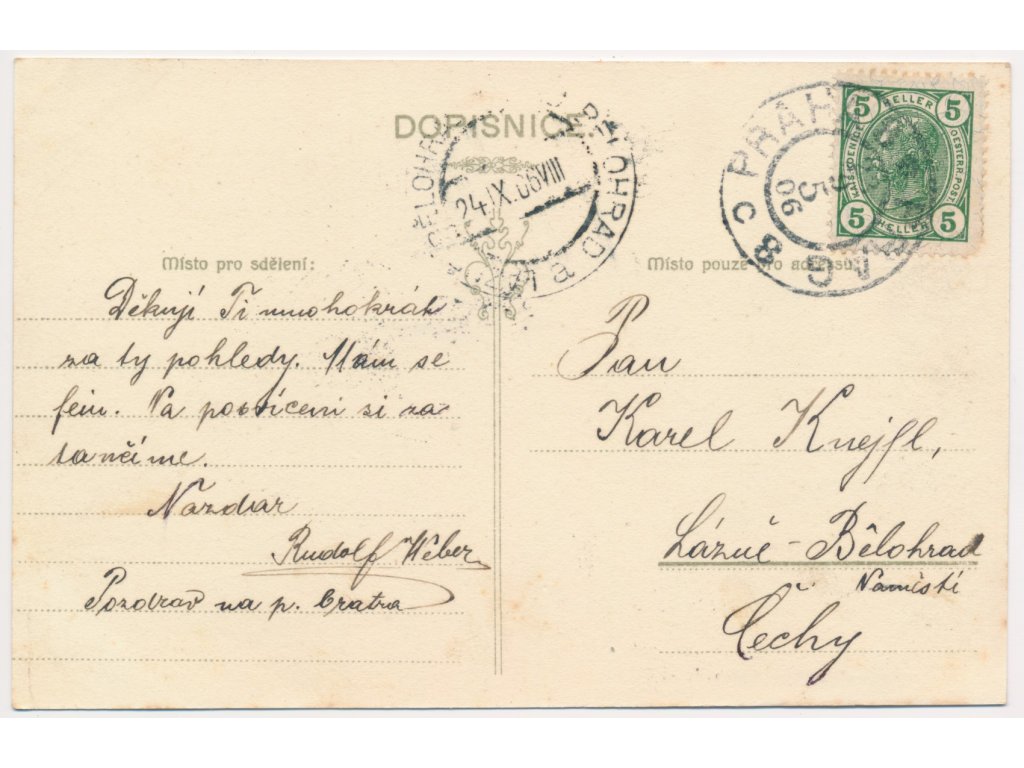 DOPISNICE
BĚLOHRAD
24.IX.06 VIII
PRAHA
5
06
C 8
5 HELLER 5
OESTERR. POST.
5 HELLER 5
Místo pro sdělení:
Děkuji Ti mnohokrát
za ty pohledy. Mám se
fein. Na posvícení si za
tančíme.
Nazdar
Rudolf Wéber
Pozdrav na p. bratra
Místo pouze pro adresu:
Pan
Karel Knejfl,
Lázně - Bělohrad
Namísti
Čechy